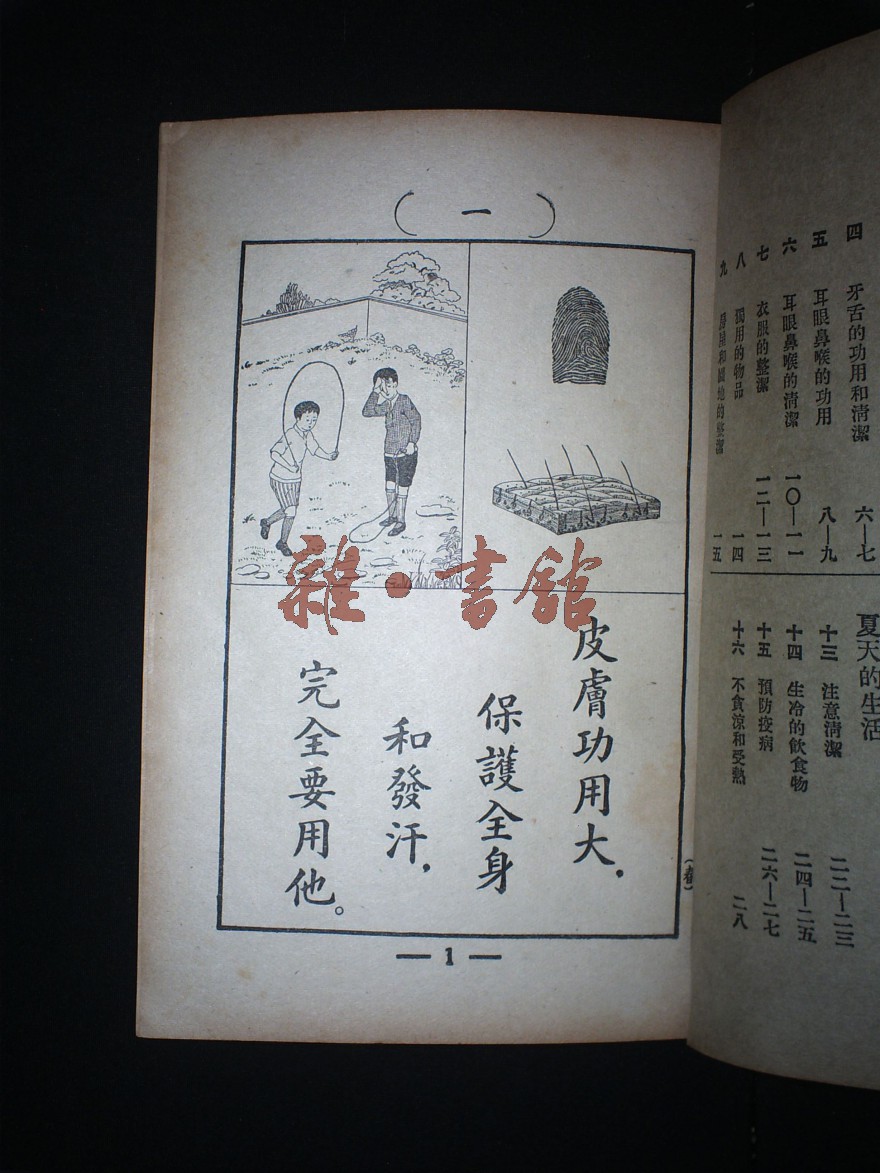 四 牙舌的功用和清潔 六—七
五 耳眼鼻喉的功用 八—九
六 耳眼鼻喉的清潔 一〇—一一
七 衣服的整潔 一二—一三
八 獨用的物品 一四
九 房屋和園地的整潔 一五
夏天的生活
十三 注意清潔 二二—二三
十四 生冷的飲食物 二四—二五
十五 預防疫病 二六—二七
十六 不貪涼和受熱 二八
(一)
皮膚功用大，
保護全身
和發汗，
完全要用他。
(春)
—1—
雜·書館